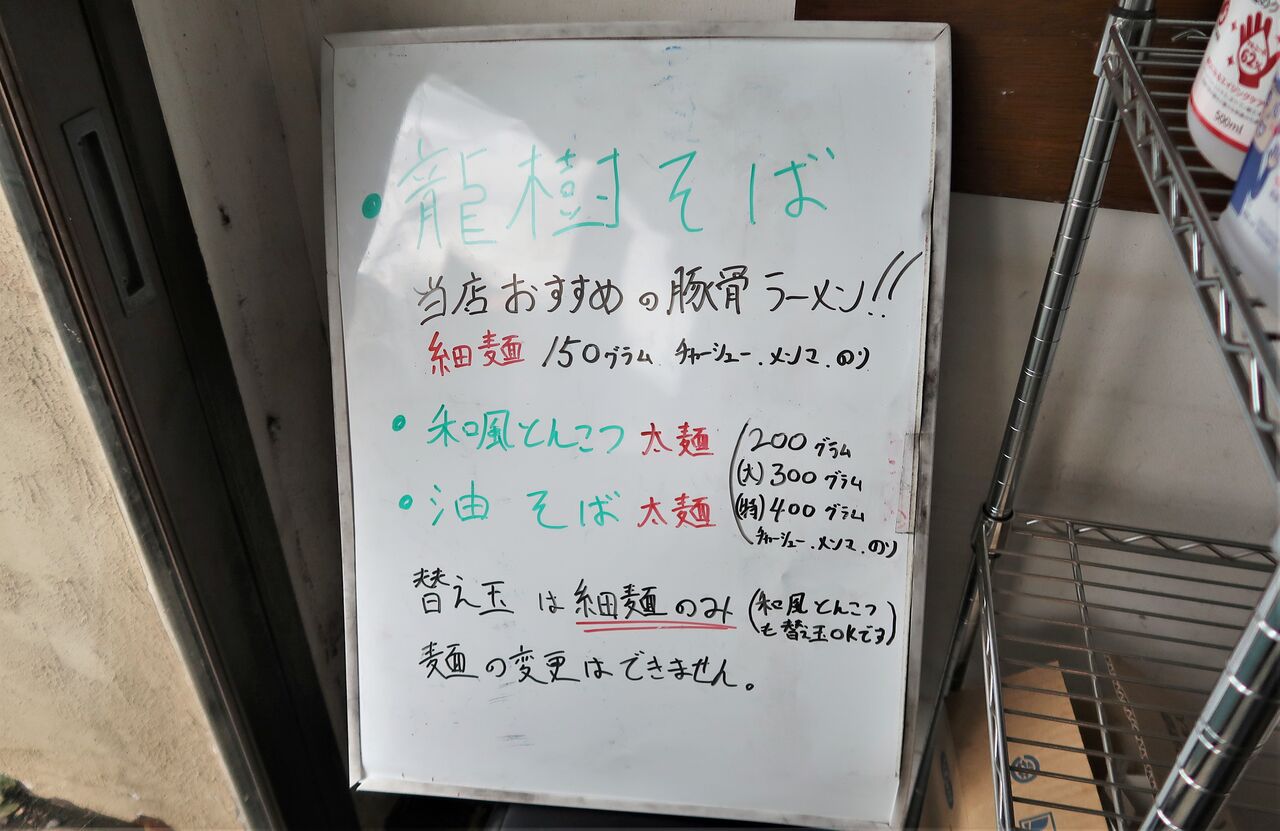 ・龍樹そば
当店おすすめの豚骨ラーメン!!
細麺 150グラム チャーシュー.メンマ.のり
・和風とんこつ 太麺
・油そば 太麺
(200グラム
(大)300グラム
(特)400グラム
チャーシュー.メンマ.のり
替え玉は細麺のみ (和風とんこつ
も替え玉OKです)
麺の変更はできません。
62%
500ml